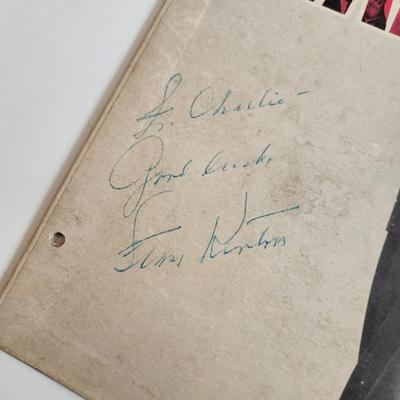 For Charlie -
Good luck,
Stan Kenton